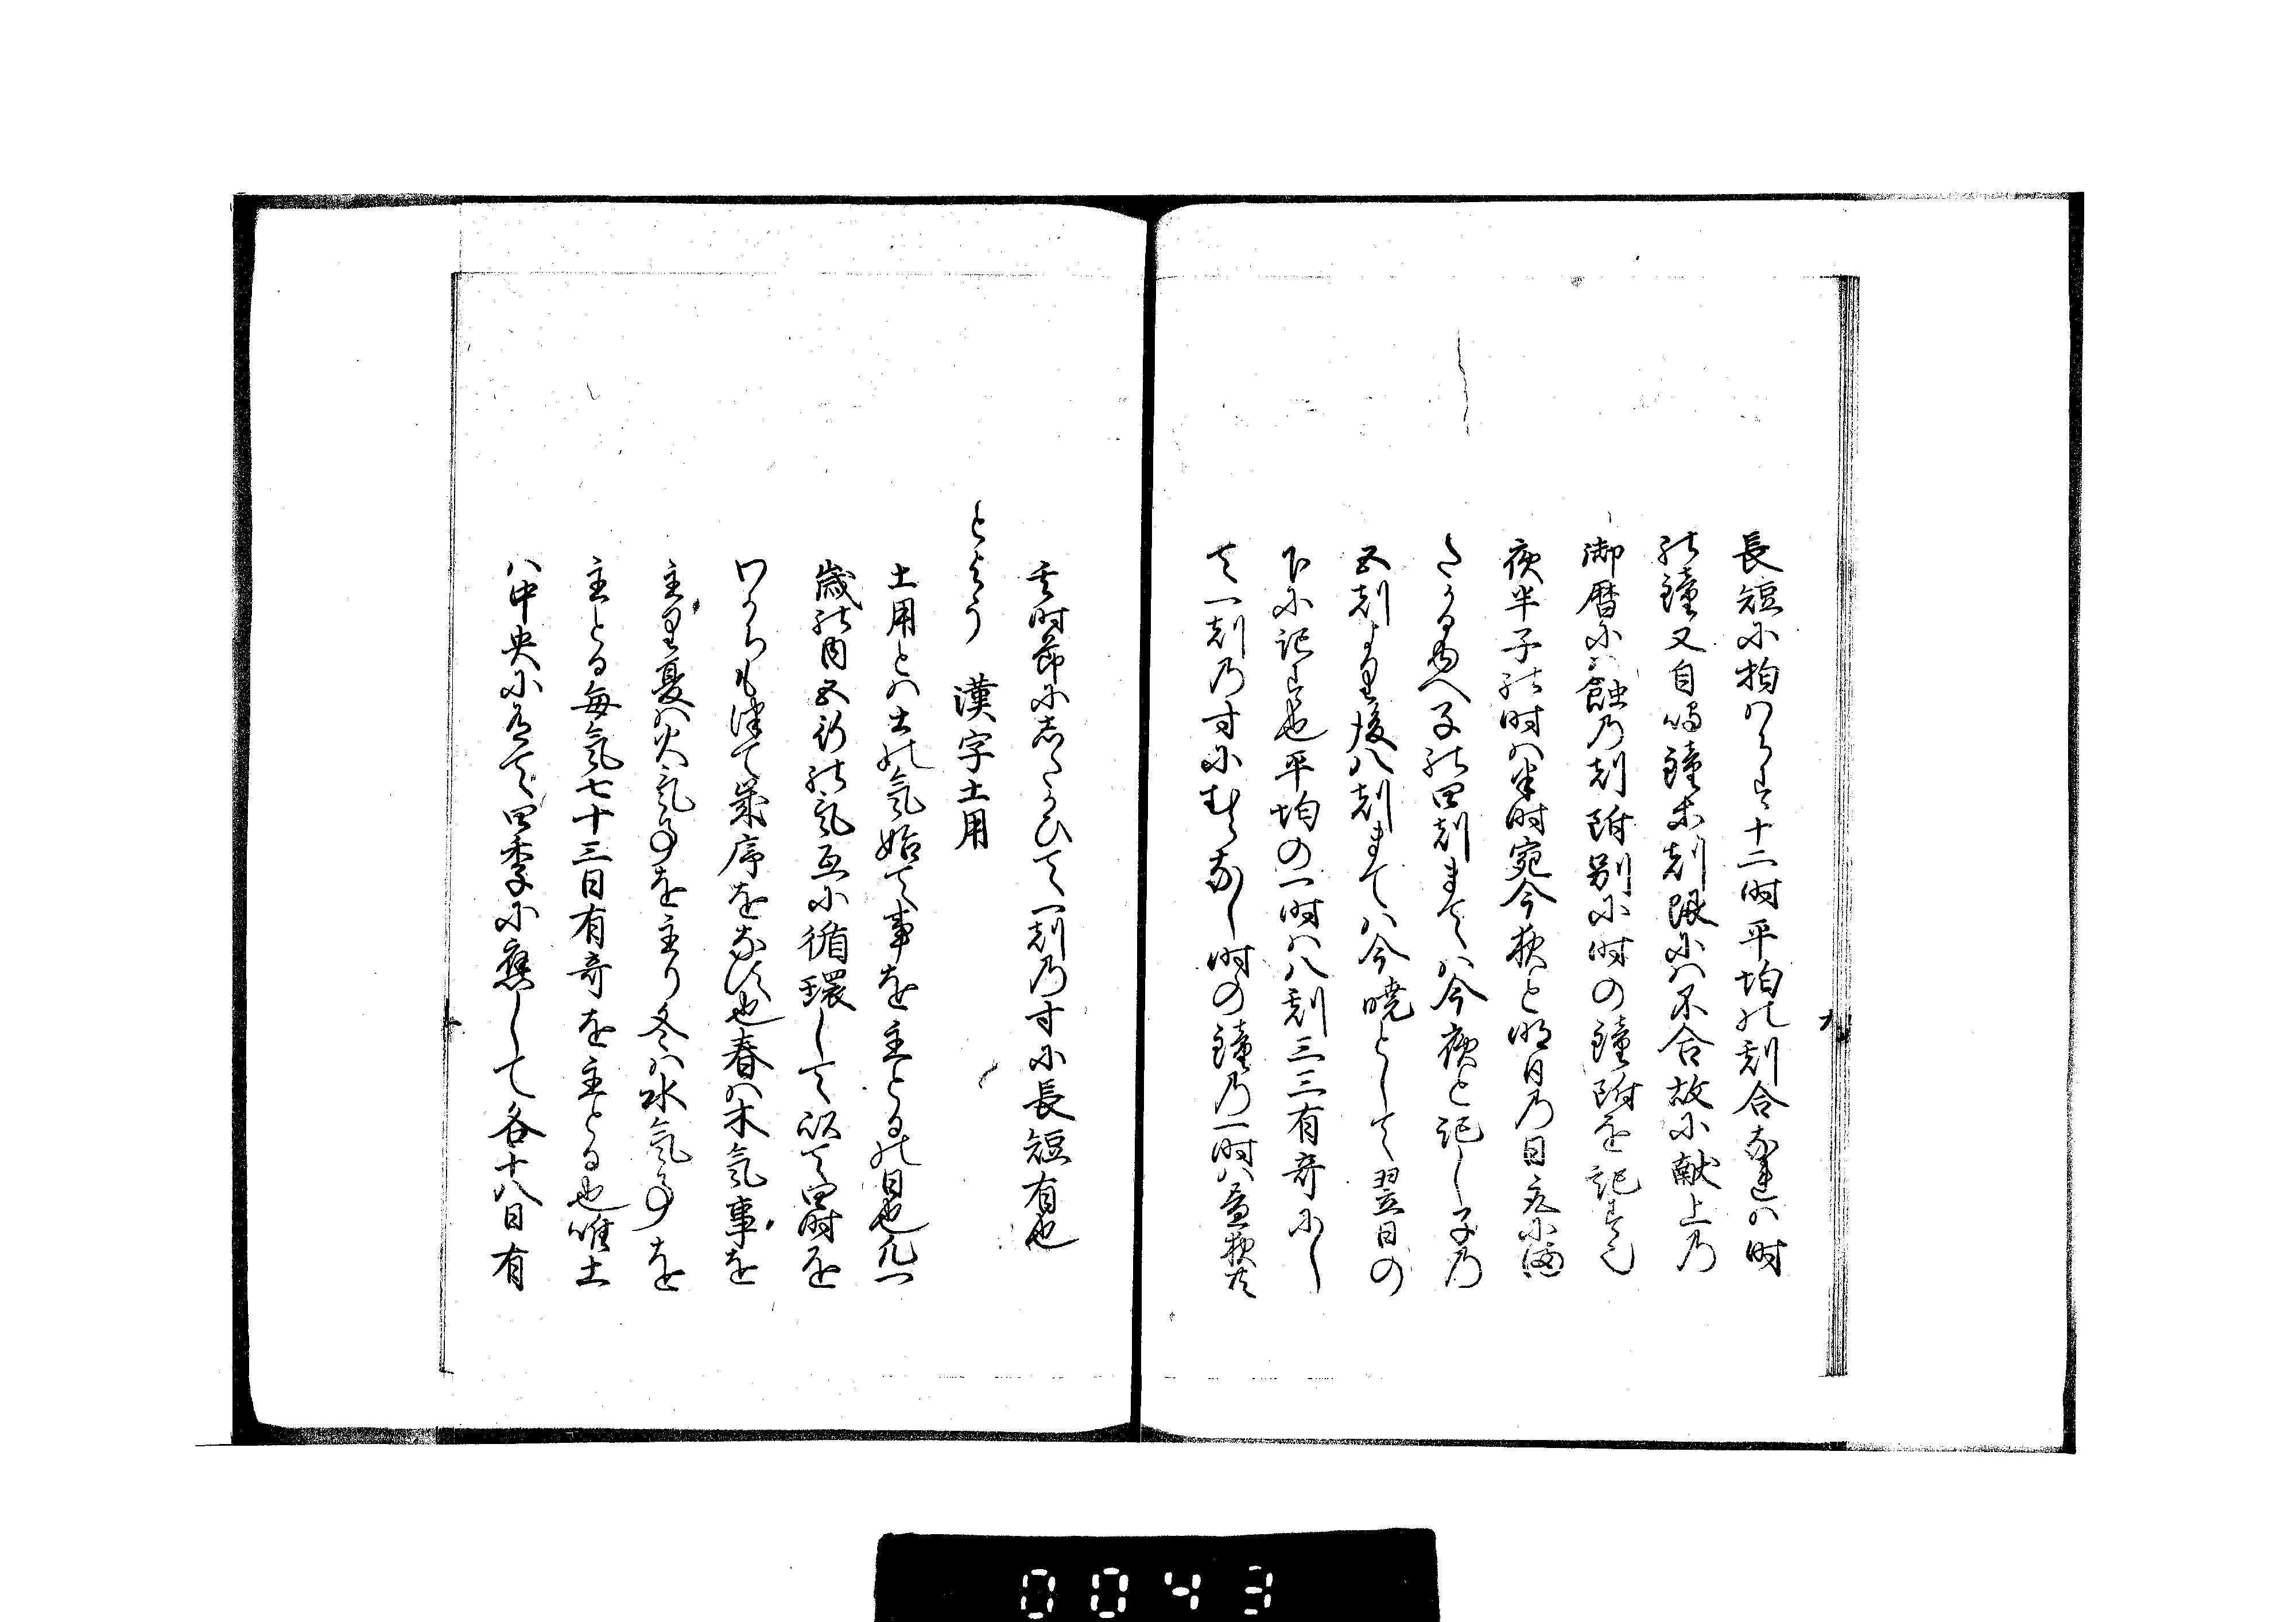 長短に拘はらす十二時平均の刻合なれは時
の鐘又自鳴鐘等刻限には不合故に献上乃
御暦には蝕乃刻附別に時の鐘附を記す也
夜半子の時は半時宛今夜と明日乃日辰に
たかるゆへ子の四刻まてハ今夜と記し子乃
五刻より後八刻まてハ今暁として翌日の
下に記す也平均の一時ハ八刻三三有奇にし
て一刻乃寸にむらなし時の鐘乃一時ハ昼夜共
其時節にしたかひて一刻乃寸に長短有也
とよう　漢字土用
土用とは土の気始て事を主とるの日也凡一
歳の内五行の気互に循環して以て四時を
わかちもつて歳序をなす也春は木気事を
主り夏ハ火気事を主り冬ハ水気事を
主とる毎気七十三日有奇を主とる也唯土
ハ中央に居て四季に應して各十八日有
0043